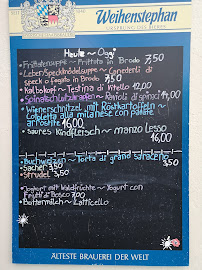 Weihenstephan
URSPRUNG DES BIERES
Heute ~ Oggi
Frittatensuppe ~ Frittata in Brodo 7,50
Leber/Speckknödelsuppe ~ Canederli di
speck o fegato in Brodo 7,50
Kalbskopf ~ Testina di Vitello 12,00
Spinatschlutzkrapfen ~ Ravioli di spinaci 14,00
Wienerschnitzel mit Röstkartoffeln ~
Cotoletta alla milanese con patate
arrostite 16,00
saures Rindfleisch ~ manzo lesso
16,00
Buchweizen ~ Torta di grano saraceno
Sacher 3,50 3,50
Strudel 3,50
Joghurt mit Waldfrüchte ~ Yogurt con
Frutti di Bosco 7,00
Buttermilch ~ Latticello
ÄLTESTE BRAUEREI DER WELT